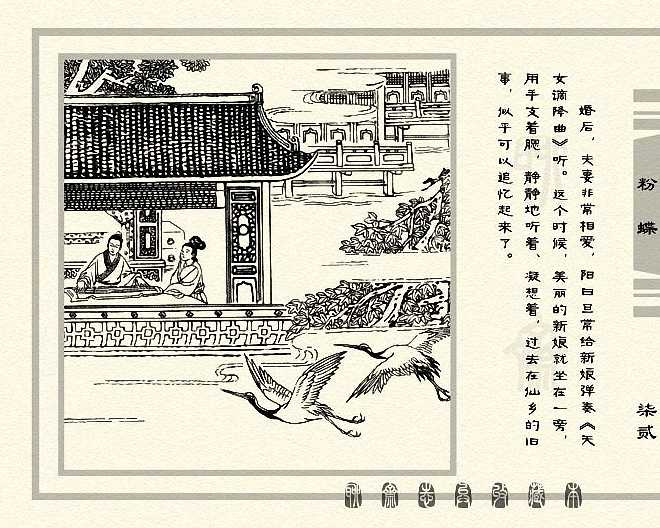 婚后，夫妻非常相爱，阳曰旦常给新娘弹奏《天
女谪降曲》听。这个时候，美丽的新娘就坐在一旁，
用手支着腮，静静地听着、凝想着，过去在仙乡的旧
事，似乎可以追忆起来了。
粉蝶
柒贰